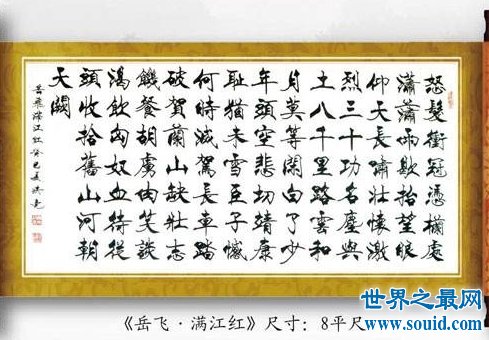 怒髮衝冠憑欄處
瀟瀟雨歇抬望眼
仰天長嘯壯懷激
烈三十功名塵與
土八千里路雲和
月莫等閑白了少
年頭空悲切靖康
耻猶未雪臣子憾
何時滅駕長車踏
破賀蘭山缺壯志
饑餐胡虜肉笑談
渴飲匈奴血待從
頭收拾舊山河朝
天闕
岳飛滿江红癸巳夏
《岳飞·满江红》尺寸：8平尺
世界之最网
www.souid.com